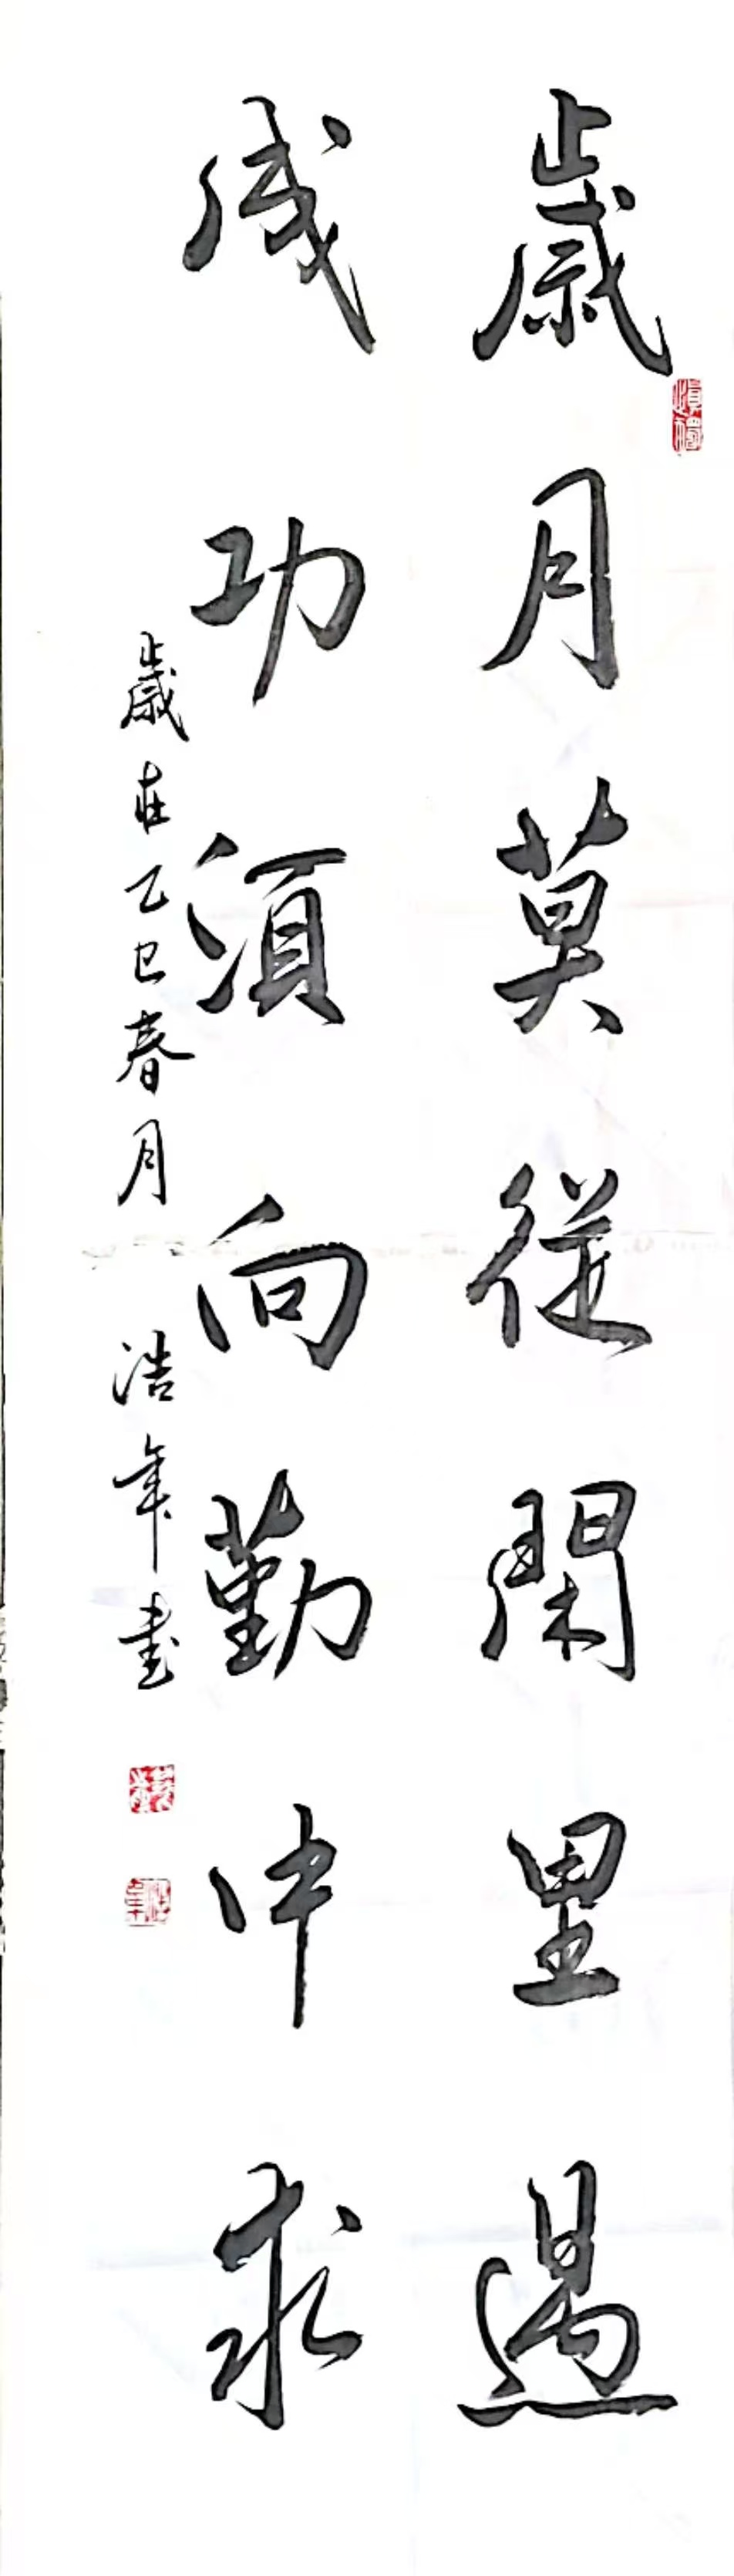 歲月莫從閑里過
成功須向勤中求
歲在乙巳春月 浩年書